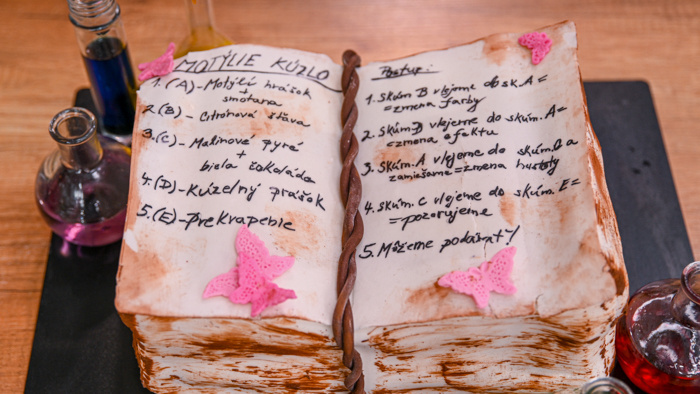 MOTÝLIE KÚZLO
1. (A)-Motýlí hrášok
+
smotana
2(B)- Citrónová šťava
3.(C)- Malinové pyré
+
biela čokoláda
4.(D)-Kúzelný prášok
5.(E)-Prekvapenie
Postup:
1. Skúm B vlejeme do sk. A =
=zmena farby
2. Skúm D vlejeme do skúm. A=
=zmena efektu
3. Skúm. A vlejeme do skúm. a
zamiešame=zmena hustoty
4. skúm. C vlejeme do skúm. E=
=pozorujeme
5. Môžeme podávať!